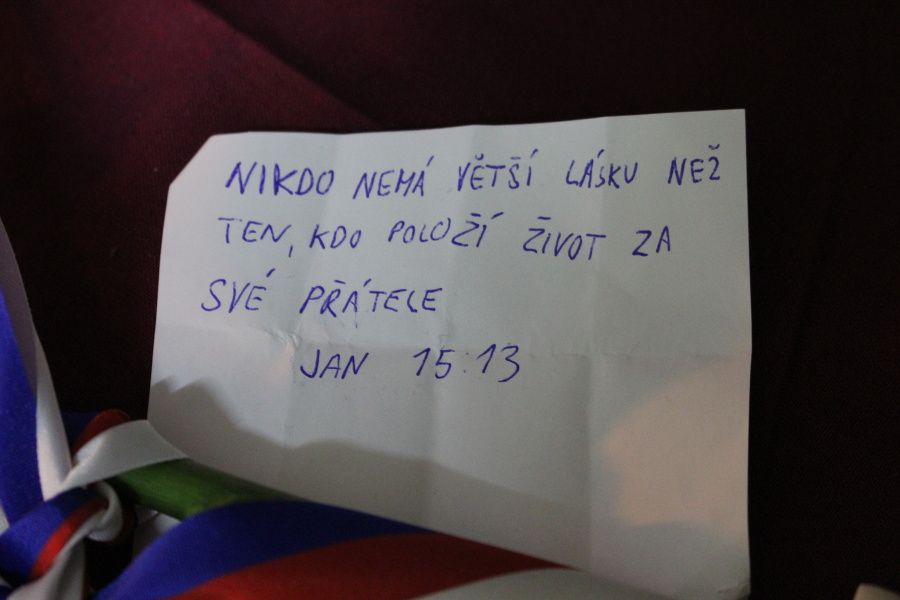 NIKDO NEMÁ VĚTŠÍ LÁSKU NEŽ
TEN, KDO POLOŽÍ ŽIVOT ZA
SVÉ PŘÁTELE
JAN 15:13